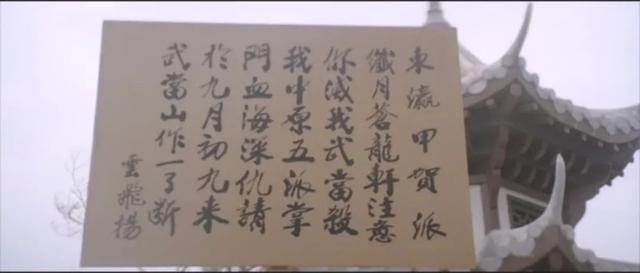 東瀛甲賀派
纖月蒼龍軒注意
你滅我武當殺
我中原五派掌
門血海深仇請
於九月初九來
武當山作一了斷
雲飛揚